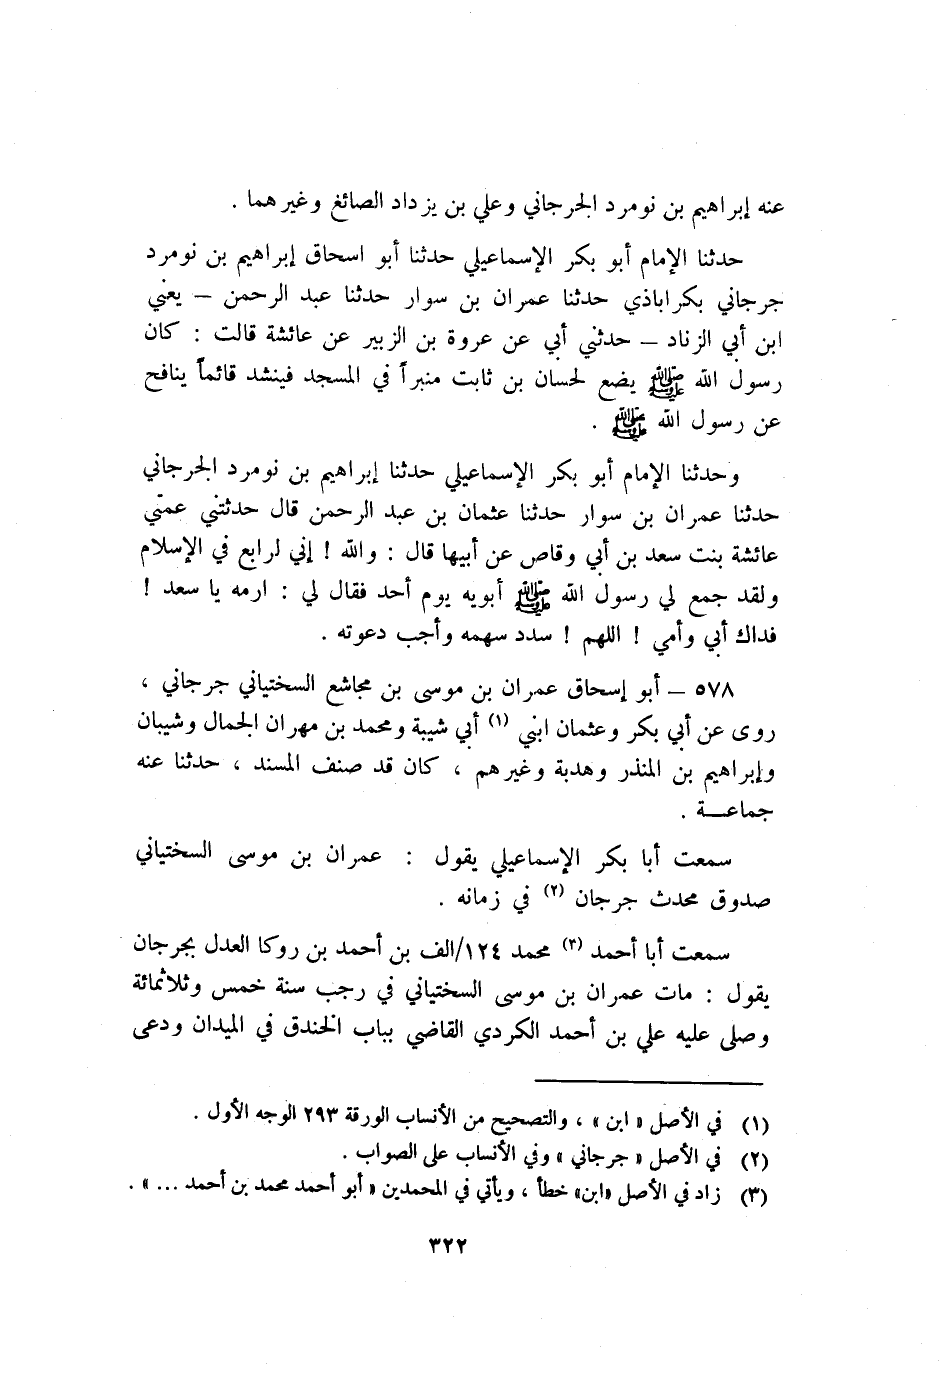 عنه إبراهيم بن نومرد الجرجاني وعلي بن يزداد الصائغ وغيرهما .
حدثنا الإمام أبو بكر الإسماعيلي حدثنا أبو اسحاق إبراهيم بن نومرد
جرجاني بكراباذي حدثنا عمران بن سوار حدثنا عبد الرحمن – يعني
ابن أبي الزناد – حدثني أبي عن عروة بن الزبير عن عائشة قالت : كان
رسول الله ﷺ يضع لحسان بن ثابت منبراً في المسجد فينشد قائماً ينافح
عن رسول الله ﷺ .
وحدثنا الإمام أبو بكر الإسماعيلي حدثنا إبراهيم بن نومرد الجرجاني
حدثنا عمران بن سوار حدثنا عثمان بن عبد الرحمن قال حدثتني عمتي
عائشة بنت سعد بن أبي وقاص عن أبيها قال : والله ! إني لرابع في الإسلام
ولقد جمع لي رسول الله ﷺ أبويه يوم أحد فقال لي : ارمه يا سعد !
فداك أبي وأمي ! اللهم ! سدد سهمه وأجب دعوته .
٥٧٨ – أبو إسحاق عمران بن موسى بن مجاشع السختياني جرجاني ،
روى عن أبي بكر وعثمان ابني (١) أبي شيبة ومحمد بن مهران الجمال وشيبان
وإبراهيم بن المنذر وهدبة وغيرهم ، كان قد صنف المسند ، حدثنا عنه
جماعـــة .
سمعت أبا بكر الإسماعيلي يقول : عمران بن موسى السختياني
صدوق محدث جرجان (٢) في زمانه .
سمعت أبا أحمد (٣) محمد ١٢٤/الف بن أحمد بن روكا العدل بجرجان
يقول : مات عمران بن موسى السختياني في رجب سنة خمس وثلاثمائة
وصلى عليه علي بن أحمد الكردي القاضي بباب الخندق في الميدان ودعى
(١) في الأصل « ابن » ، والتصحيح من الأنساب الورقة ٢٩٣ الوجه الأول .
(٢) في الأصل « جرجاني » وفي الأنساب على الصواب .
(٣) زاد في الأصل «ابن» خطأ ، ويأتي في المحمدين « أبو أحمد محمد بن أحمد ... » .
٣٢٢